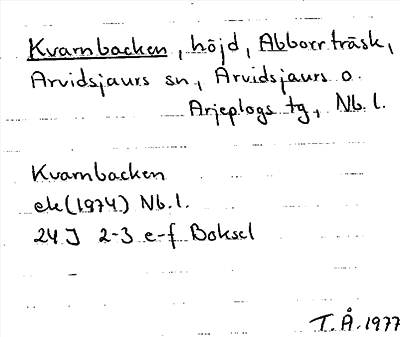 Kvarnbacken, höjd, Abborrträsk,
Arvidsjaurs sn, Arvidsjaurs o.
Arjeplogs tg, Nb. l.
Kvarnbacken
ek (1974) Nb. l.
24 J 2-3 e-f Boksel
T. Å. 1977